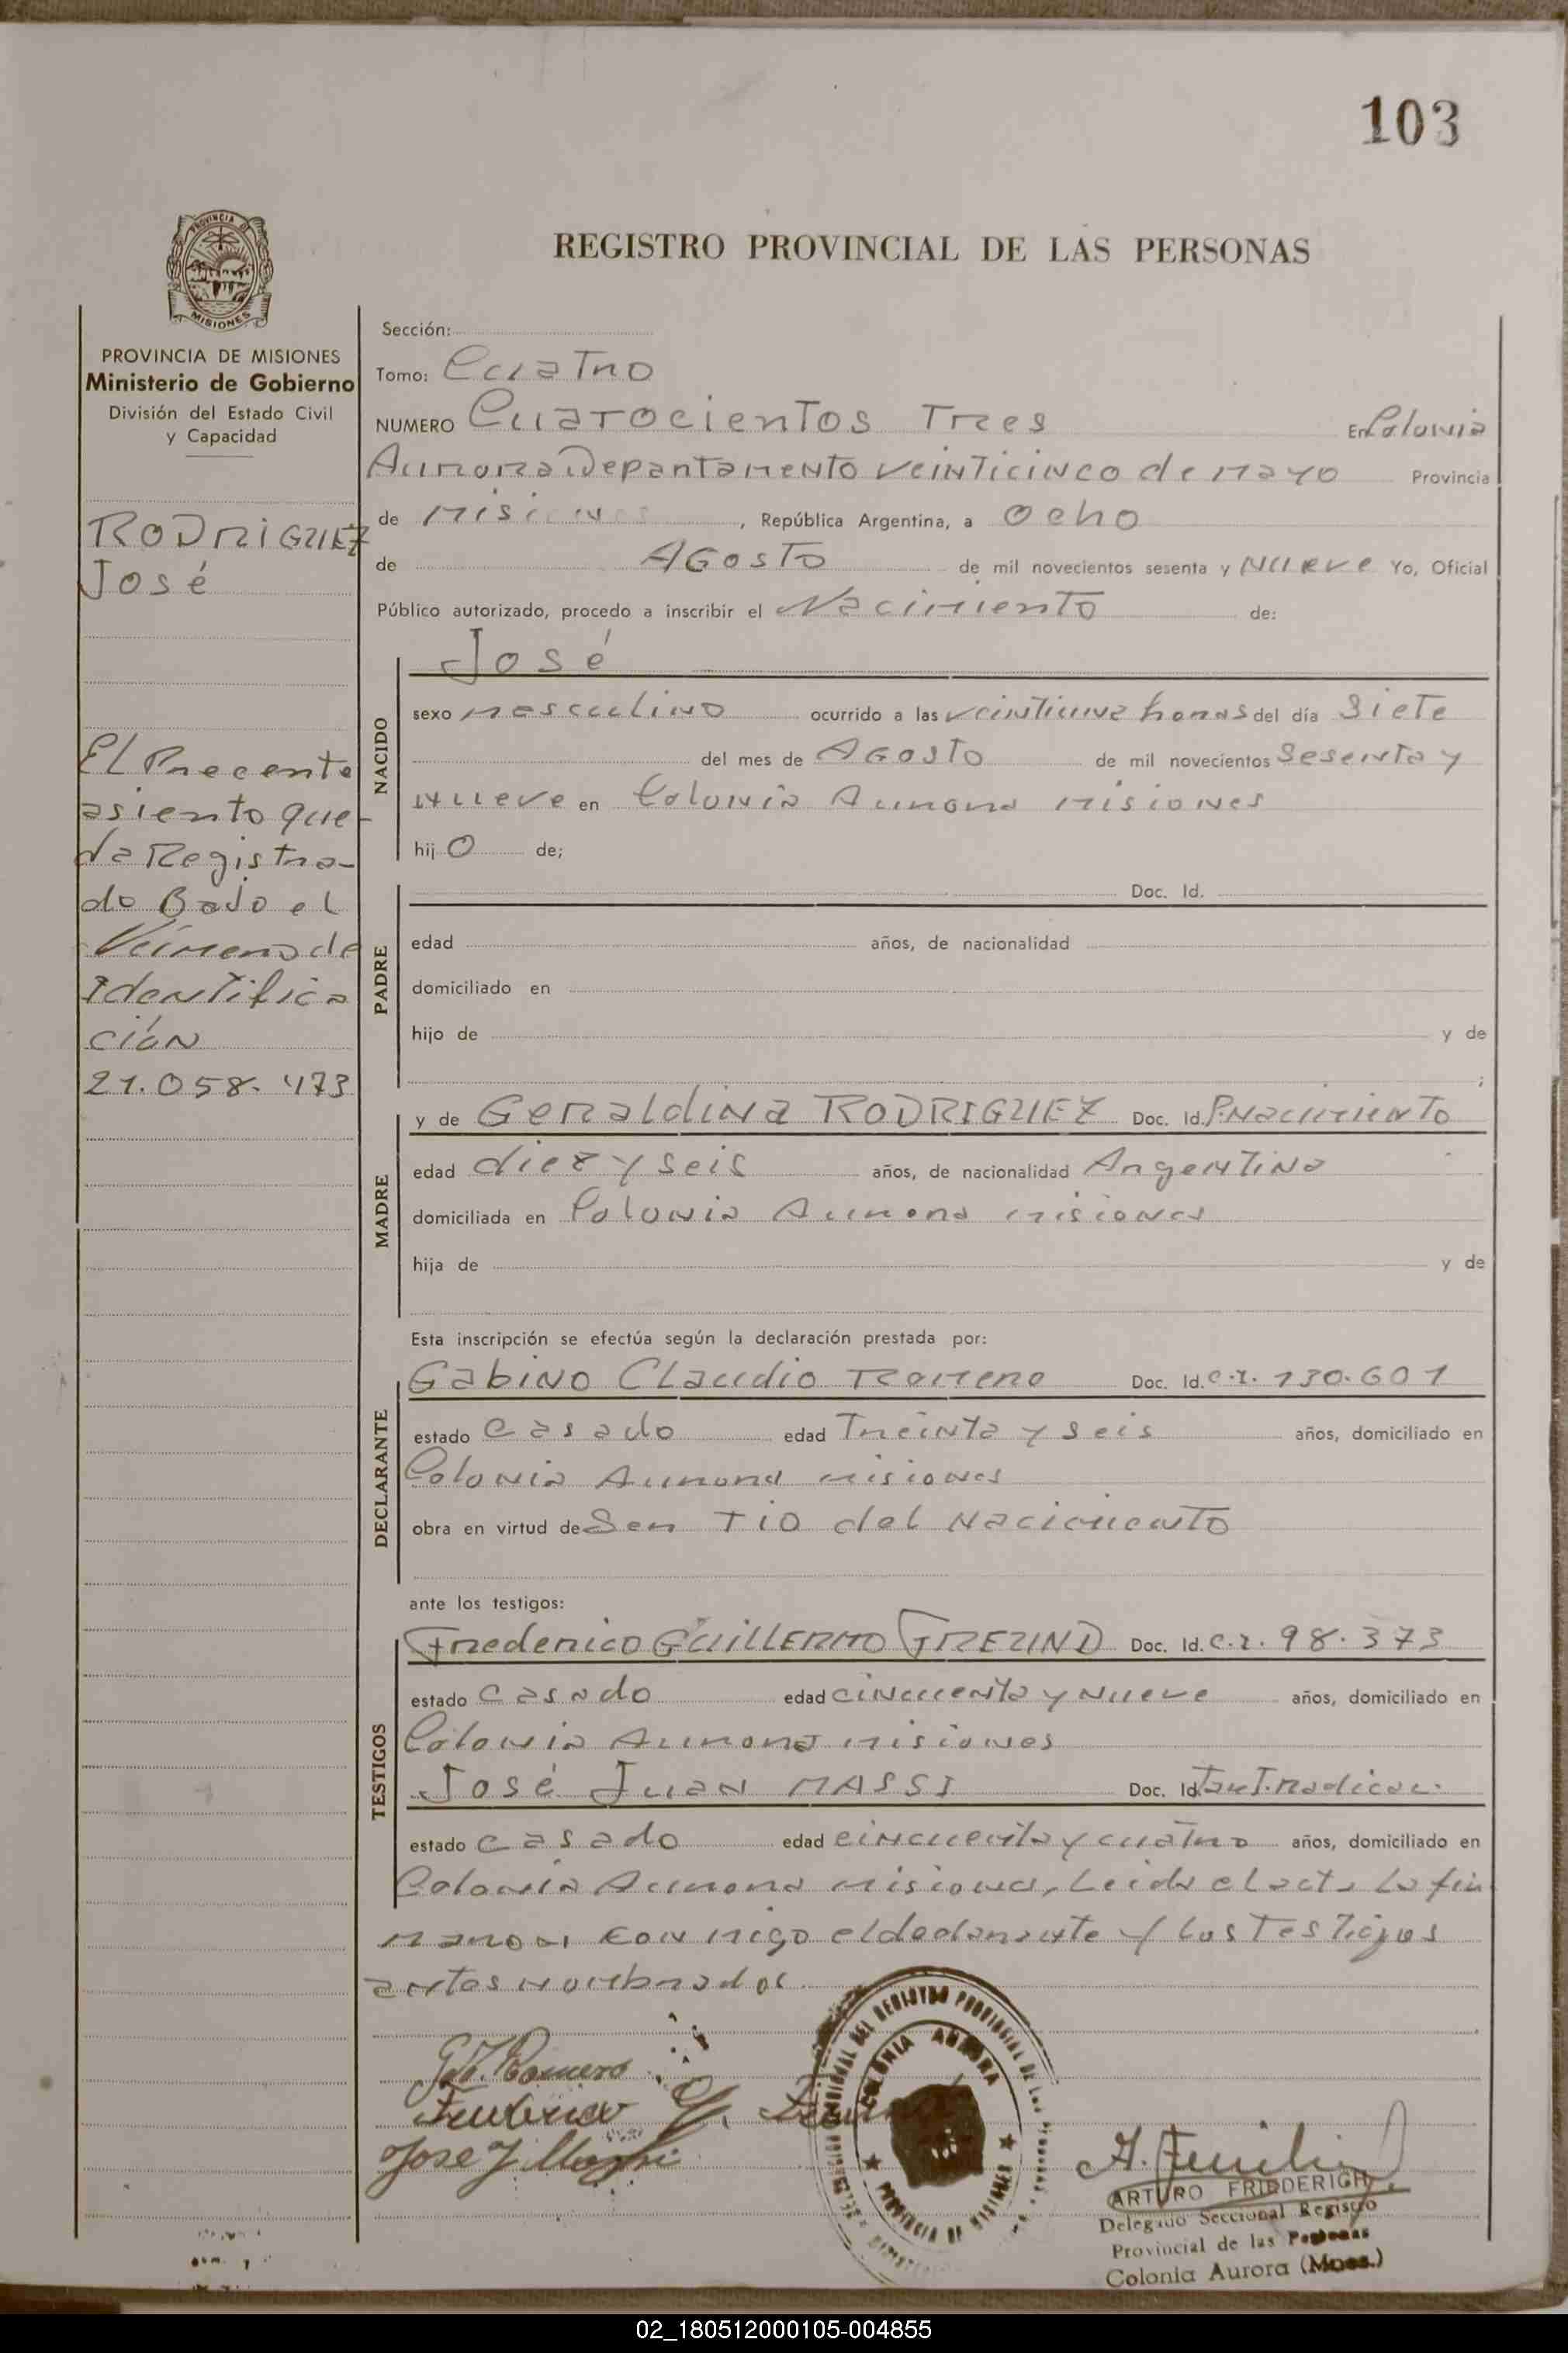 103
PROVINCIA DE
MISIONES
REGISTRO PROVINCIAL DE LAS PERSONAS
PROVINCIA DE MISIONES
Ministerio de Gobierno
División del Estado Civil
y Capacidad
RODRIGUEZ
José
El Precente
asiento que-
da Registra-
do Bajo el
Número de
Identifica
ción
21.058.473
Sección:
Tomo: Cuatro
NUMERO Cuatrocientos Tres En Colonia
Aurora Departamento veinticinco de Mayo Provincia
de Misiones, República Argentina, a Ocho
de Agosto de mil novecientos sesenta y Nueve Yo, Oficial
Público autorizado, procedo a inscribir el Nacimiento de:
NACIDO
José
sexo masculino ocurrido a las veintiuna horas del día Siete
del mes de Agosto de mil novecientos Sesenta y
Nueve en Colonia Aurora Misiones
hij O de;
PADRE
Doc. Id.
edad años, de nacionalidad
domiciliado en
hijo de y de
;
MADRE
y de Geraldina RODRIGUEZ Doc. Id. P.Nacimiento
edad diez y seis años, de nacionalidad Argentina
domiciliada en Colonia Aurora Misiones
hija de y de
Esta inscripción se efectúa según la declaración prestada por:
DECLARANTE
Gabino Claudio Romero Doc. Id. C.I. 130.601
estado Casado edad Treinta y seis años, domiciliado en
Colonia Aurora Misiones
obra en virtud de Ser Tio del Nacimiento
ante los testigos:
TESTIGOS
Frederico GUILLERMO FREUND Doc. Id. C.I. 98.373
estado Casado edad cincuenta y nueve años, domiciliado en
Colonia Aurora Misiones
José Juan MASSI Doc. Id.
estado Casado edad cincuenta y cuatro años, domiciliado en
Colonia Aurora Misiones, Leida el acta La fir
maron con migo el declarante y los Testigos
antes nombrados
G. Romero
Jose J. Massi
COLONIA AURORA
PROVINCIA DE
ARTURO FRIDDERICH
Delegado Seccional Registro
Provincial de las Personas
Colonia Aurora (Mnes.)
02_180512000105-004855